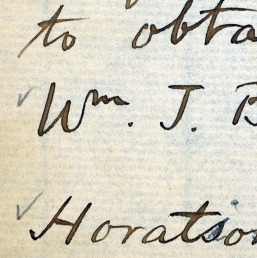 to obta
Wm. J. B
Horatson